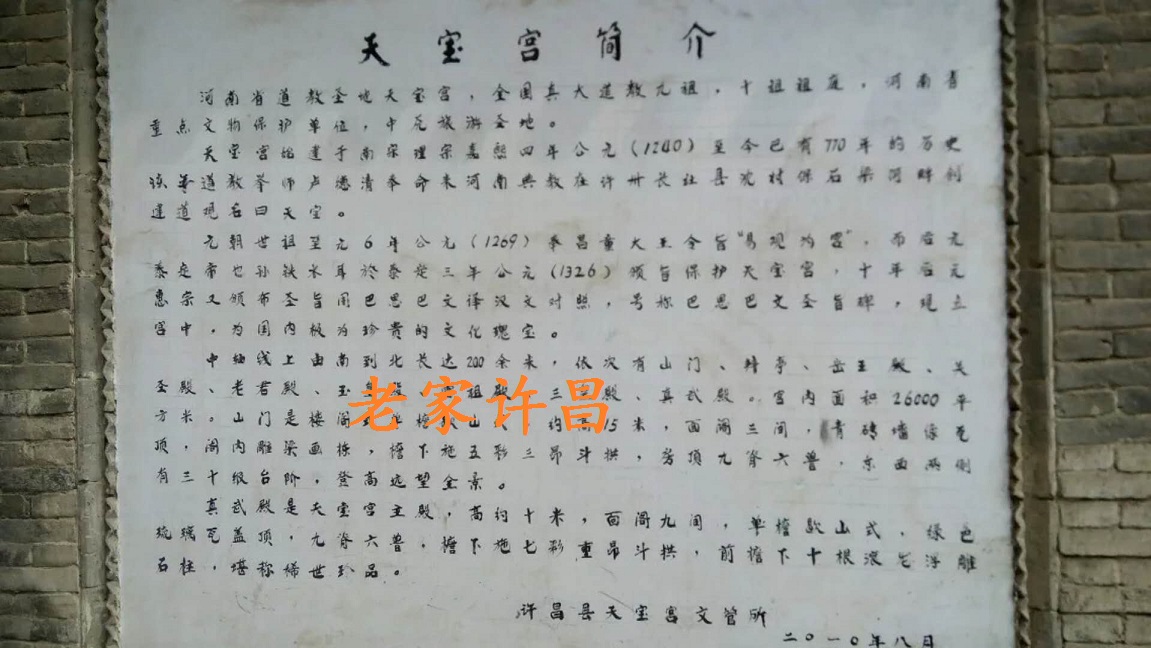 天宝宫简介
河南省道教圣地天宝宫，全国真大道教九祖，十祖祖庭，河南省
重点文物保护单位，中原旅游圣地。
天宝宫始建于南宋理宗嘉熙四年公元(1240)至今已有770年的历史
该年道教举师卢德清奉命来河南兴教在许州长社县流村保石梁河畔创
建道观名曰天宝。
元朝世祖至元6年公元(1269)奉昌童大王令旨“易观为宫”，而后元
泰定帝也孙铁木耳於泰定三年公元(1326)颁旨保护天宝宫，十年后元
惠宗又颁布圣旨用巴思巴文译汉文对照，号称巴思巴文圣旨碑，现立
宫中，为国内极为珍贵的文化瑰宝。
中轴线上由南到北长达200余米，依次有山门、拜亭、岳王殿、关
圣殿、老君殿、玉皇殿、祖殿、三殿、真武殿。宫内面积26000平
方米。山门是楼阁 山 约高15米，面阔三间，青砖墙 瓦
顶，阁内雕梁画栋，檐下施五彩三昂斗拱，房顶九脊六兽，东西两侧
有三十级台阶，登高远望全景。
真武殿是天宝宫主殿，高约十米，面阔九间，单檐歇山式，绿色
琉璃瓦盖顶，九脊六兽，檐下施七彩重昂斗拱，前檐下十根滚龙浮雕
石柱，堪称稀世珍品。
许昌县天宝宫文管所
二〇一〇年八月
老家许昌